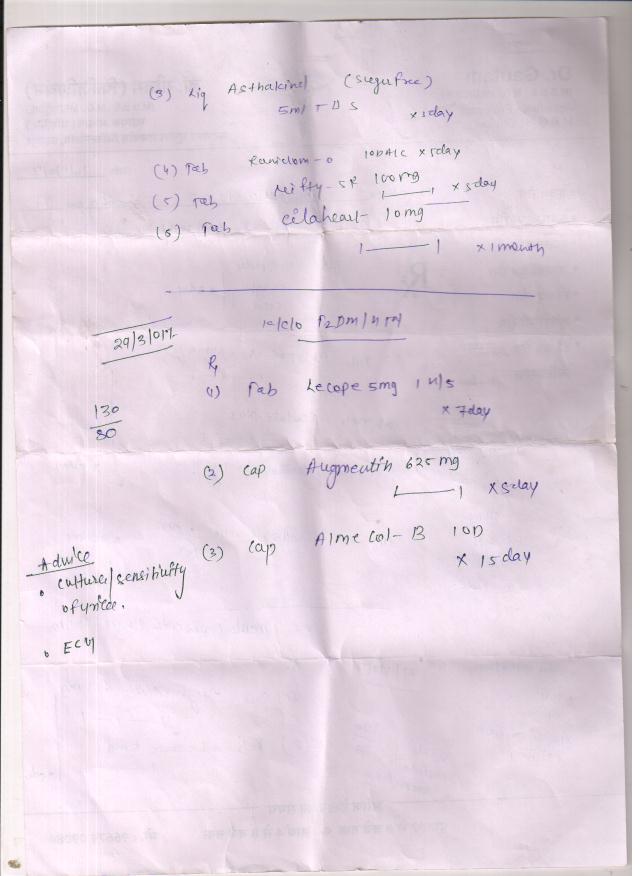 (3) Liq Asthakind (Sugarfree)
5ml TDS
x 3day
(4) Tab Raniclom-O 1ODA/C x 5day
(5) Tab Nifty-SR 100mg
1——1 x 5day
(6) Tab Cilaheart- 10mg
1——1 x 1 month
29/3/017
k/c/o T2DM/HTN
R
(1) Tab Lecope 5mg 1 H/S
x 7day
130
80
(2) Cap Augmentin 625 mg
1——1 x 5day
(3) Cap Almecol-B 1OD
x 15day
Advice
• Culture/sensitivity
of urine.
• ECG